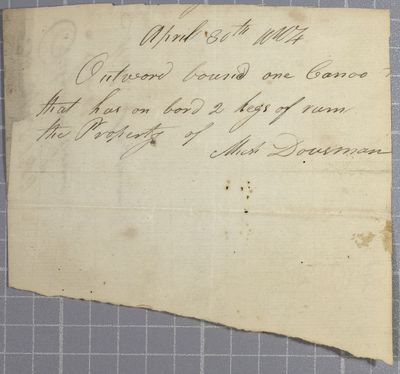 April 30th 1804
Outword bound one Canoo
that has on bord 2 kegs of rum
the Property of
Mich Dousman